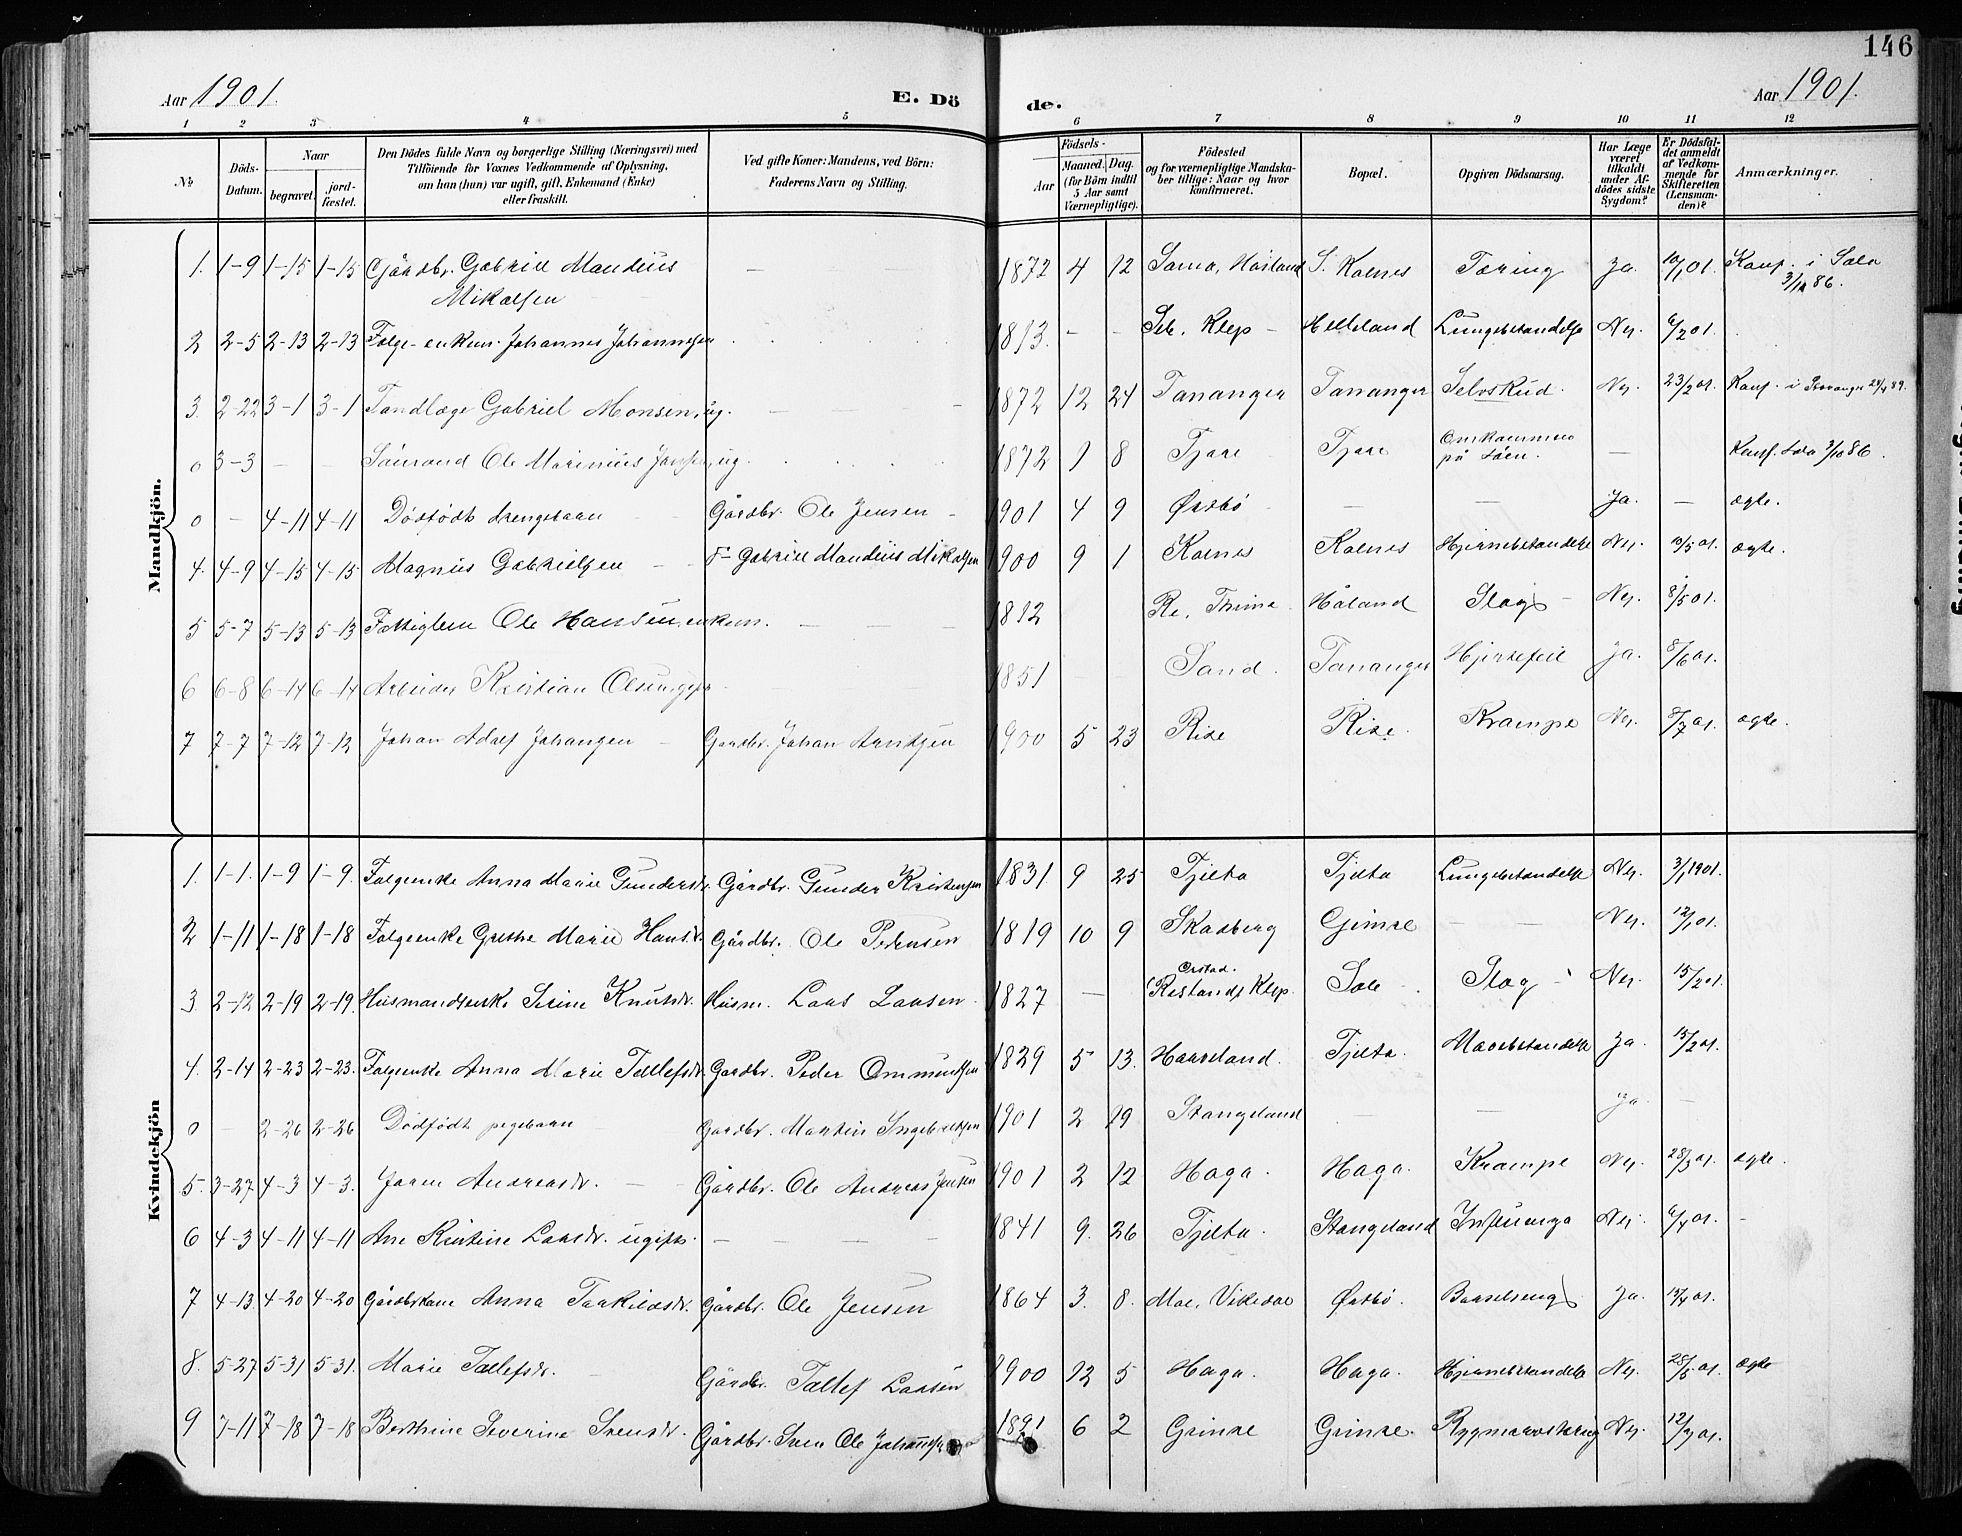 146
Aar 1901. E. Dö de. Aar 1901.
1 2 3 4 5 6 7 8 9 10 11 12
No. Döds-Datum. Naar begravet. jordfæstet. Den Dödes fulde Navn og borgerlige Stilling (Næringsvei) med Tilföiende for Voxnes Vedkommende af Oplysning, om han (hun) var ugift, gift, Enkemand (Enke) eller fraskilt. Ved gifte Koner: Mandens, ved Börn: Faderens Navn og Stilling. Födsels- Aar Maaned. Dag. (for Börn indtil 5 Aar samt Værnepligtige). Födested og for værnepligtige Mandskaber tillige: Naar og hvor konfirmeret. Bopæl. Opgiven Dödsaarsag. Har Læge været tilkaldt under Afdödes sidste Sygdom? Er Dödsfaldet anmeldt af Vedkommende for Skifteretten (Lensmanden)? Anmærkninger.
Mandkjön.
1. 1-9 1-15 1-15 Gårdbr. Gabriel Mandius Mikalsen — — 1872 4 12 Soma, Høiland S. Kolnes Tæring Ja. 10/1 01. Konf. i Sola 3/10 86.
2 2-5 2-13 2-13 Folge-enkem. Johannes Johannessen 1813. - - Sele, Klep - Helleland Lungebetændelse Nej. 6/2 01.
3. 2-22 3-1 3-1 Tandlæge Gabriel Monsen, ug. — 1872 12 24 Tananger Tananger Selvskud. Nej. 23/2 01. Konf. i
0 3-3 — — Sömand Ole Marinius Jansen, ug. 1872 1 8 Tjore Tjore Omkommen på Söen. — Konf. Sola 3/10 86.
0 — 4-11 4-11 Dödfödt drengebarn Gårdbr. Ole Jensen - 1901 4 9 Østbö — — Ja. — ægte.
4. 4-9 4-15 4-15 Magnus Gabrielsen — F- Gabriel Mandius Mikalsen 1900 9 1 Kolnes Kolnes Hjernebetændelse Nej. 10/5 01. ægte.
5 5-7 5-13 5-13 Fattiglem Ole Hansen, enkem. — — 1812 Re, Thime Håland Slag - Nej. 8/5 01.
6 6-8 6-14 6-14 Arbeider Kristian Olsen, gift 1851 Sand. Tananger Hjertefeil Ja. 8/6 01.
7 7-7 7-12 7-12 Johan Adolf Johansen — Gardbr. Johan Arntsen 1900 5 23 Rise Rise. Krampe Nej. 8/7 01. ægte.
Kvindekjön
1. 1-1. 1-9 1-9. Folgeenke Anna Marie Gundersdr. Gårdbr. Gunder Kristensen 1831 9 25 Tjelta Tjelta Lungebetændelse Nej. 3/1 1901.
2 1-11 1-18 1-18 Folgeenke Grethe Marie Hansdr. Gårdbr. Ole Pedersen 1819 10 9 Skadberg Gimre — — Nej. 12/1 01.
3. 2-12 2-19 2-19. Husmandsenke Serine Knutsdr. Husm. Lars Larsen 1827 — Orstad. Klep. Sole Slag Nej. 15/2 01.
4. 2-14 2-23 2-23. Folgeenke Anna Marie Tollefsdr. Gardbr. Peder Ommundsen 1829 5 13. Haaseland. Tjelta. Mavebetændelse Ja. 15/2 01.
0 — 2-26 2-26 Dödfödt pigebarn Gardbr. Martin Ingebretsen 1901 2 19 Stangeland — — Ja. —
5. 3-27 4-3 4-3. Joren Andreasdr. — Gårdbr. Ole Andreas Jensen 1901 2 12 Haga. Haga. Krampe Nej. 28/3 01. ægte.
6 4-3 4-11 4-11 Ane Kirstine Larsdr. ugift. — — 1841 9. 26 Tjelta. Stangeland Influenza Nej. 6/4 01. -
7 4-13 4-20 4-20 Gårdbrkone Anna Torkildsdr. Gårdbr. Ole Jensen 1864 3. 8. Moe, Vikedal Østbö. Barselseng Ja. 15/4 01.
8. 5-27 5-31 5-31. Marie Tollefsdr. Gårdbr. Tollef Larsen 1900 12 5 Haga. Haga. Hjernebetændelse Nej. 28/5 01. ægte
9 7-11 7-18 7-18 Berthine Severine Svensdr. Gårdbr. Sven Ole Johannessen 1891 6 2 Grinne Grinne. Nej. 12/7 01.